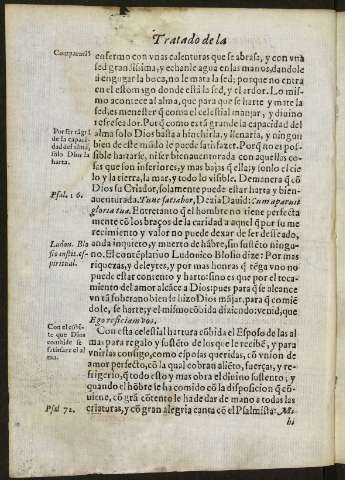 Tratado de la
Comparaciõ
enfermo con vnas calenturas que se abrasa, y con vna
sed grandissima, y echanle agua en las manos, dandole
a enguagar la boca, no le mata la sed; porque no entra
en el estomago donde está la sed, y el ardor. Lo mis-
mo acontece al alma, que para que se harte y mate la
sed, es menester q̃ coma el celestial manjar, y diuino
refrescador. Porq̃ como es tã grande la capacidad del
Por ser tãgrã
de la capaci-
dad del alma,
solo Dios la
harta.
alma solo Dios basta a hinchirla, y llenarla, y ningun
bien de este mũdo le puede satisfazer. Porq̃ no es pos-
sible hartarse, ni ser bienauenturada con aquellas co-
sas que son inferiores, y mas bajas q̃ ella, y son lo el cie-
lo y la tierra, la mar, y todo lo visible. De manera q̃ cõ
Dios su Criador, solamente puede estar harta y bien-
Psal. 16.
auenturada. Tunc satiabor, Dezia Dauid: Cum aparuerit
gloria tua. Entretanto q̃ el hombre no tiene perfecta
mente cõ los braços de la caridad a aquel q̃ por su me
recimiento y valor no puede dexar de ser desseado,
anda inquieto, y muerto de hãbre, sin sustẽto ningu-
Ludou. Blo
sio instit. es-
piritual.
no. El contẽplatiuo Ludouico Blosio dize: Por mas
riquezas, y deleytes, y por mas honras q̃ tẽga vno no
puede estar contento y harto: sino es que por el toca-
miento del amor alcãce a Dios: pues para q̃ se alcance
vn tã soberano bien se hizo Dios mãjar, para q̃ comiẽ
dole, se harte; y el mismo cõbida diziendo: venid, que
Ego reficiam vos.
Con el cõbi-
te que Dios
combida se
satisface el al
ma.
Con esta celestial hartura cõbida el Esposo de las al
mas para regalo y sustẽto de los que le recibẽ, y para
vnirlas consigo, como esposas queridas, cõ vnion de
amor perfecto, cõ la qual cobran aliẽto, fuerças, y re-
frigerio, q̃ todo esto y mas obra el diuino sustento; y
quando el hõbre le ha comido cõ la disposicion q̃ cõ-
uiene, cõ grã cõtento le ha de dar de mano a todas las
Psal 72.
criaturas, y cõ gran alegria canta cõ el Psalmista: Mi-
hi